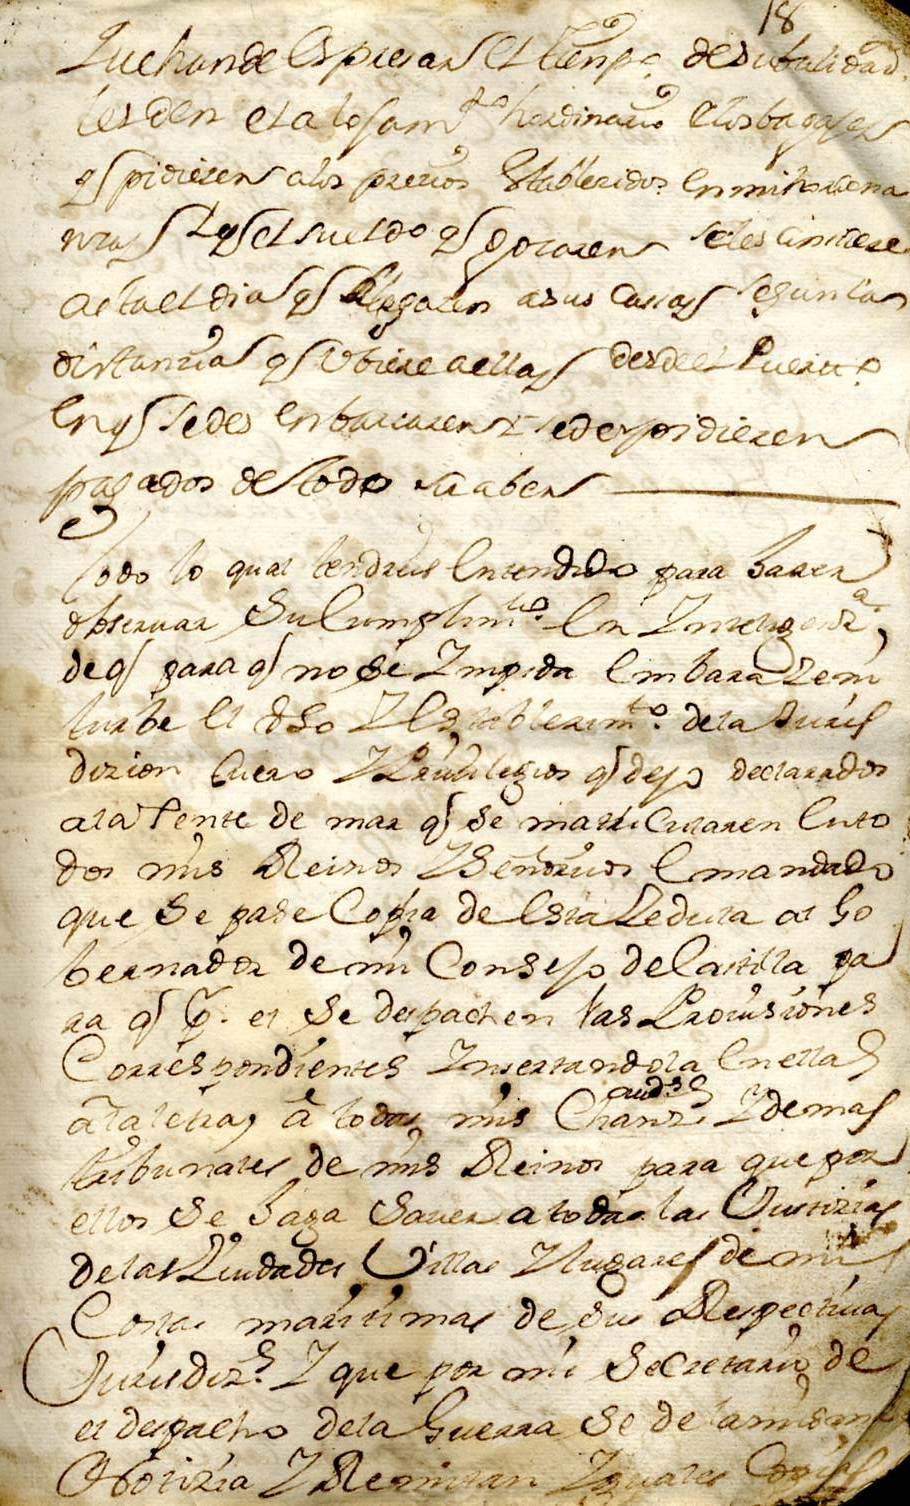 18
Que han de Espresar el tiempo de su balidad
les den el alojam.to hordinario e los bagajes
q pidieren a los precios Establecidos en mis hordena
nzas y q el sueldo q gozaren se les continue
asta el dia q llegaren a sus Casas segun las
distanzias q Ubiere a ellas desde el Puerto
En q se des enbarcaren y se despidieren
pagados de todo su aber
todo lo qual tendreis Entendido para hazer
observar su Cumplim.to En Inteligenz.a
de q para q no se Impida Embaraze ni
turbe el Uso I Establezim.to de la Juris
dizion fuero I Privilegios q dejo declarados
a la Jente de mar q se matricularen En to
dos mis Reinos I Señorios E mandado
que se pase Copia de Esta Zedula al Go
bernador de mi Consejo de Castilla pa
ra q p.r el se despachen las Provisiones
Correspondientes Insertandola En ellas
a la letra, a todas mis Chanz.s aud.s I demas
tribunales de mis Reinos para que por
ellos se haga saver a todas las Justizias
de las Ziudades Villas I lugares de mis
Costas maritimas de sus Respectivas
Jurisdiz.s I que por mi Secretario de
el despacho de la Guerra se de la misma
Notizia I Remitan Iguales Copias